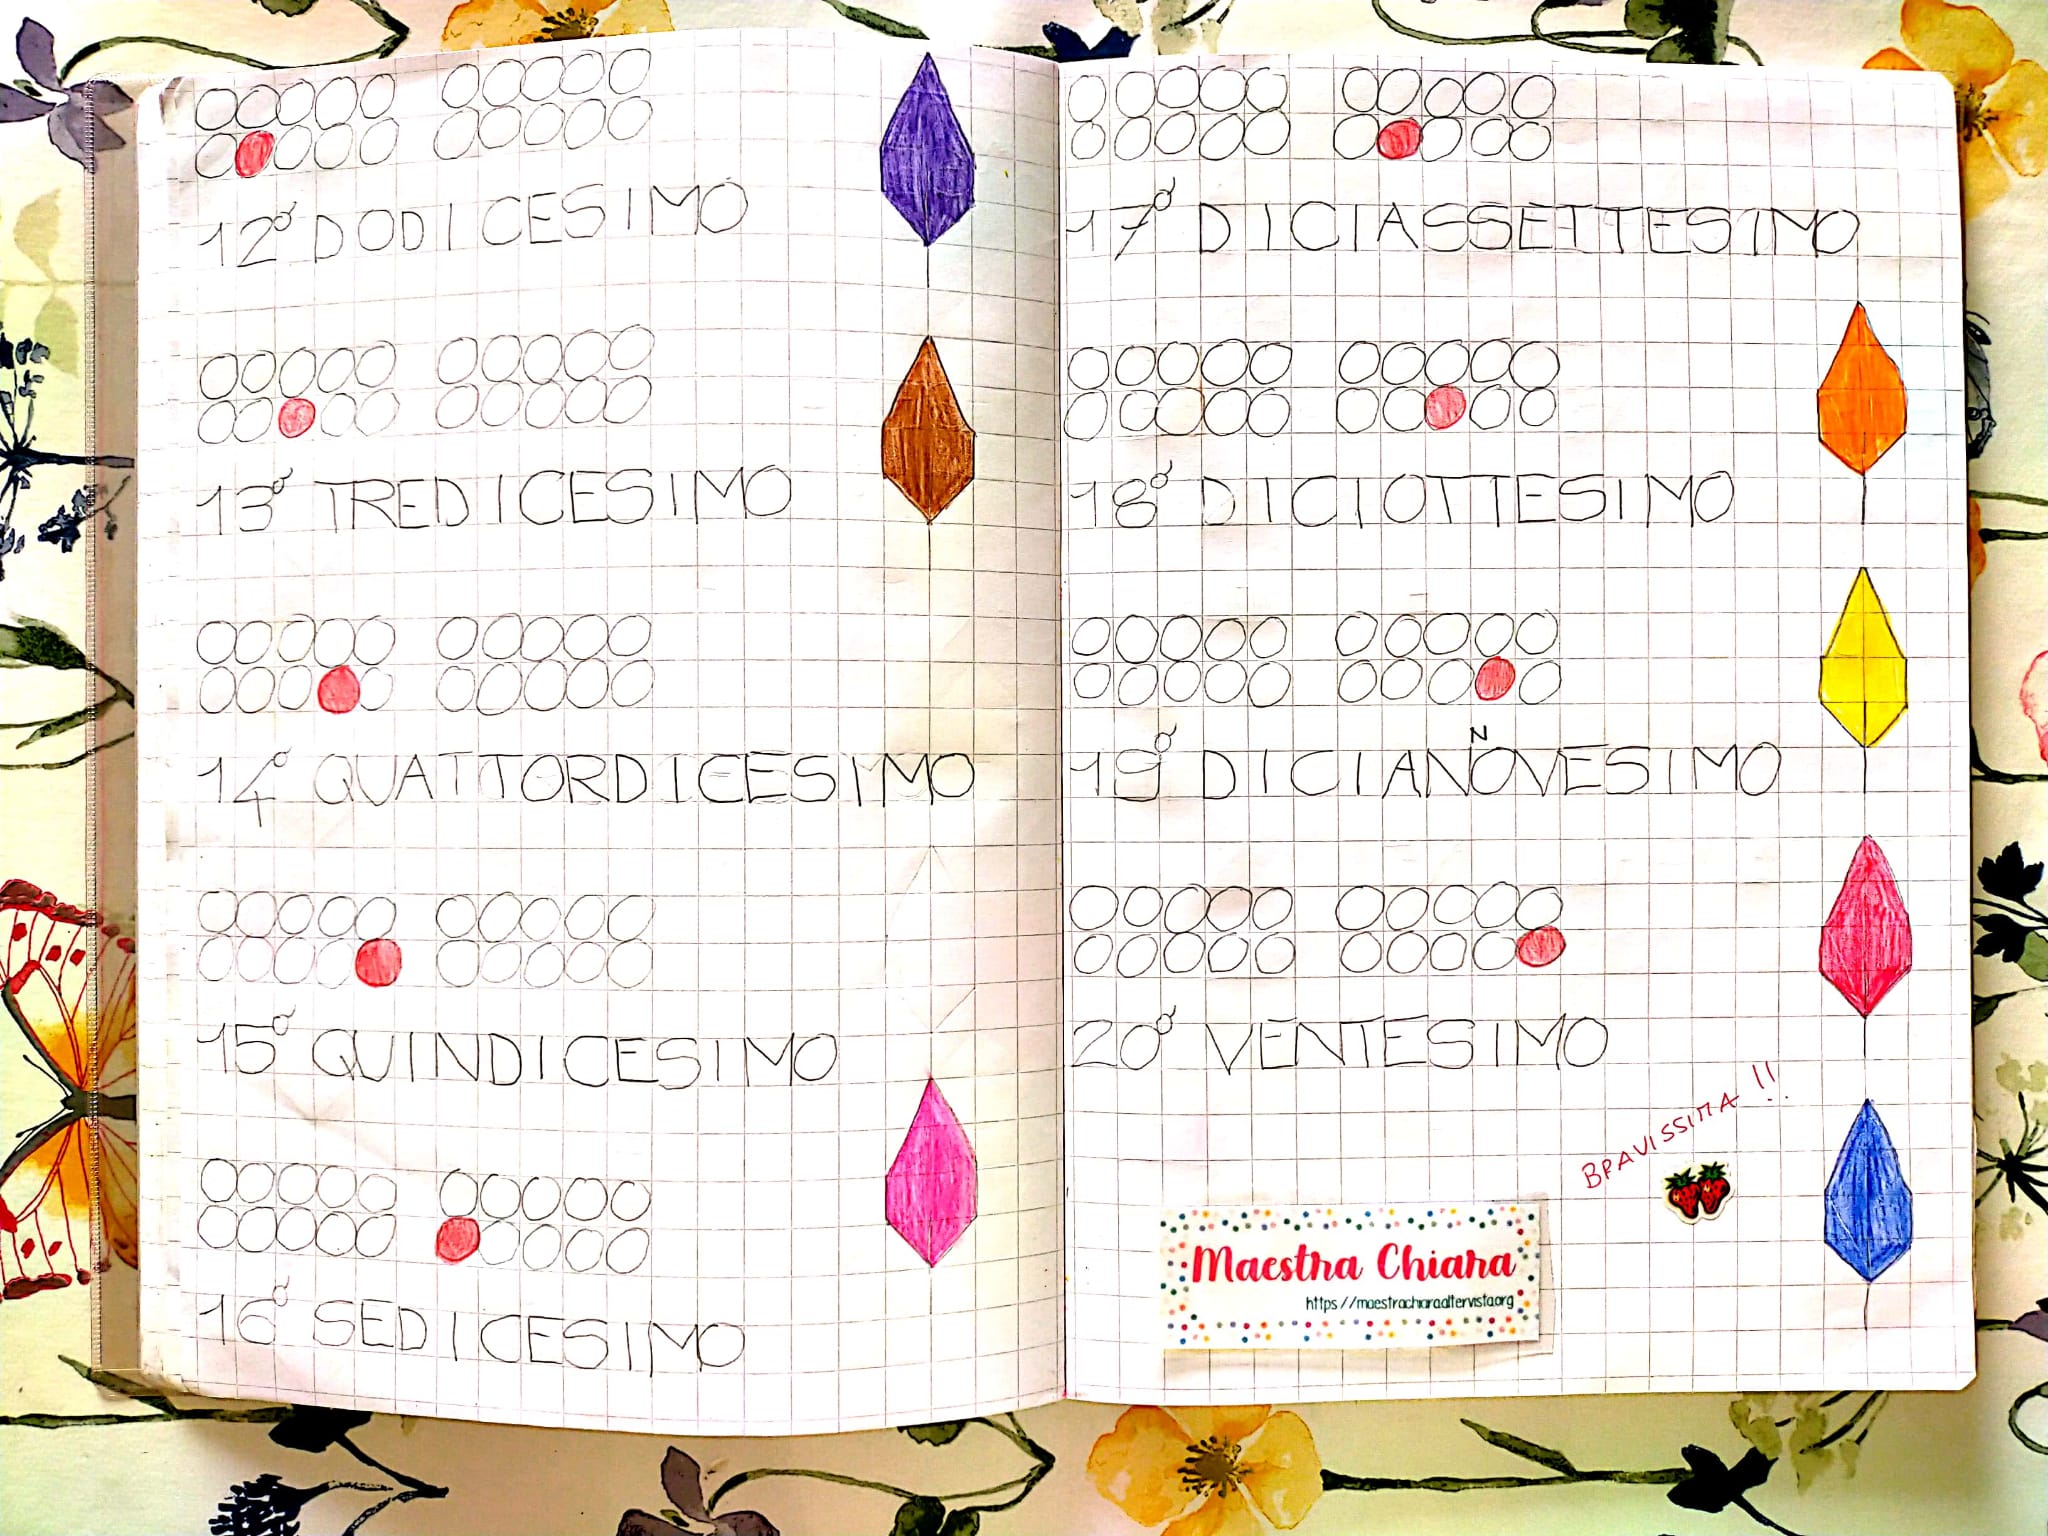 12° DODICESIMO
13° TREDICESIMO
14° QUATTORDICESIMO
15° QUINDICESIMO
16° SEDICESIMO
17° DICIASSETTESIMO
18° DICIOTTESIMO
N
19° DICIANOVESIMO
20° VENTESIMO
BRAVISSIMA !!
Maestra Chiara
https://maestrachiara.altervista.org